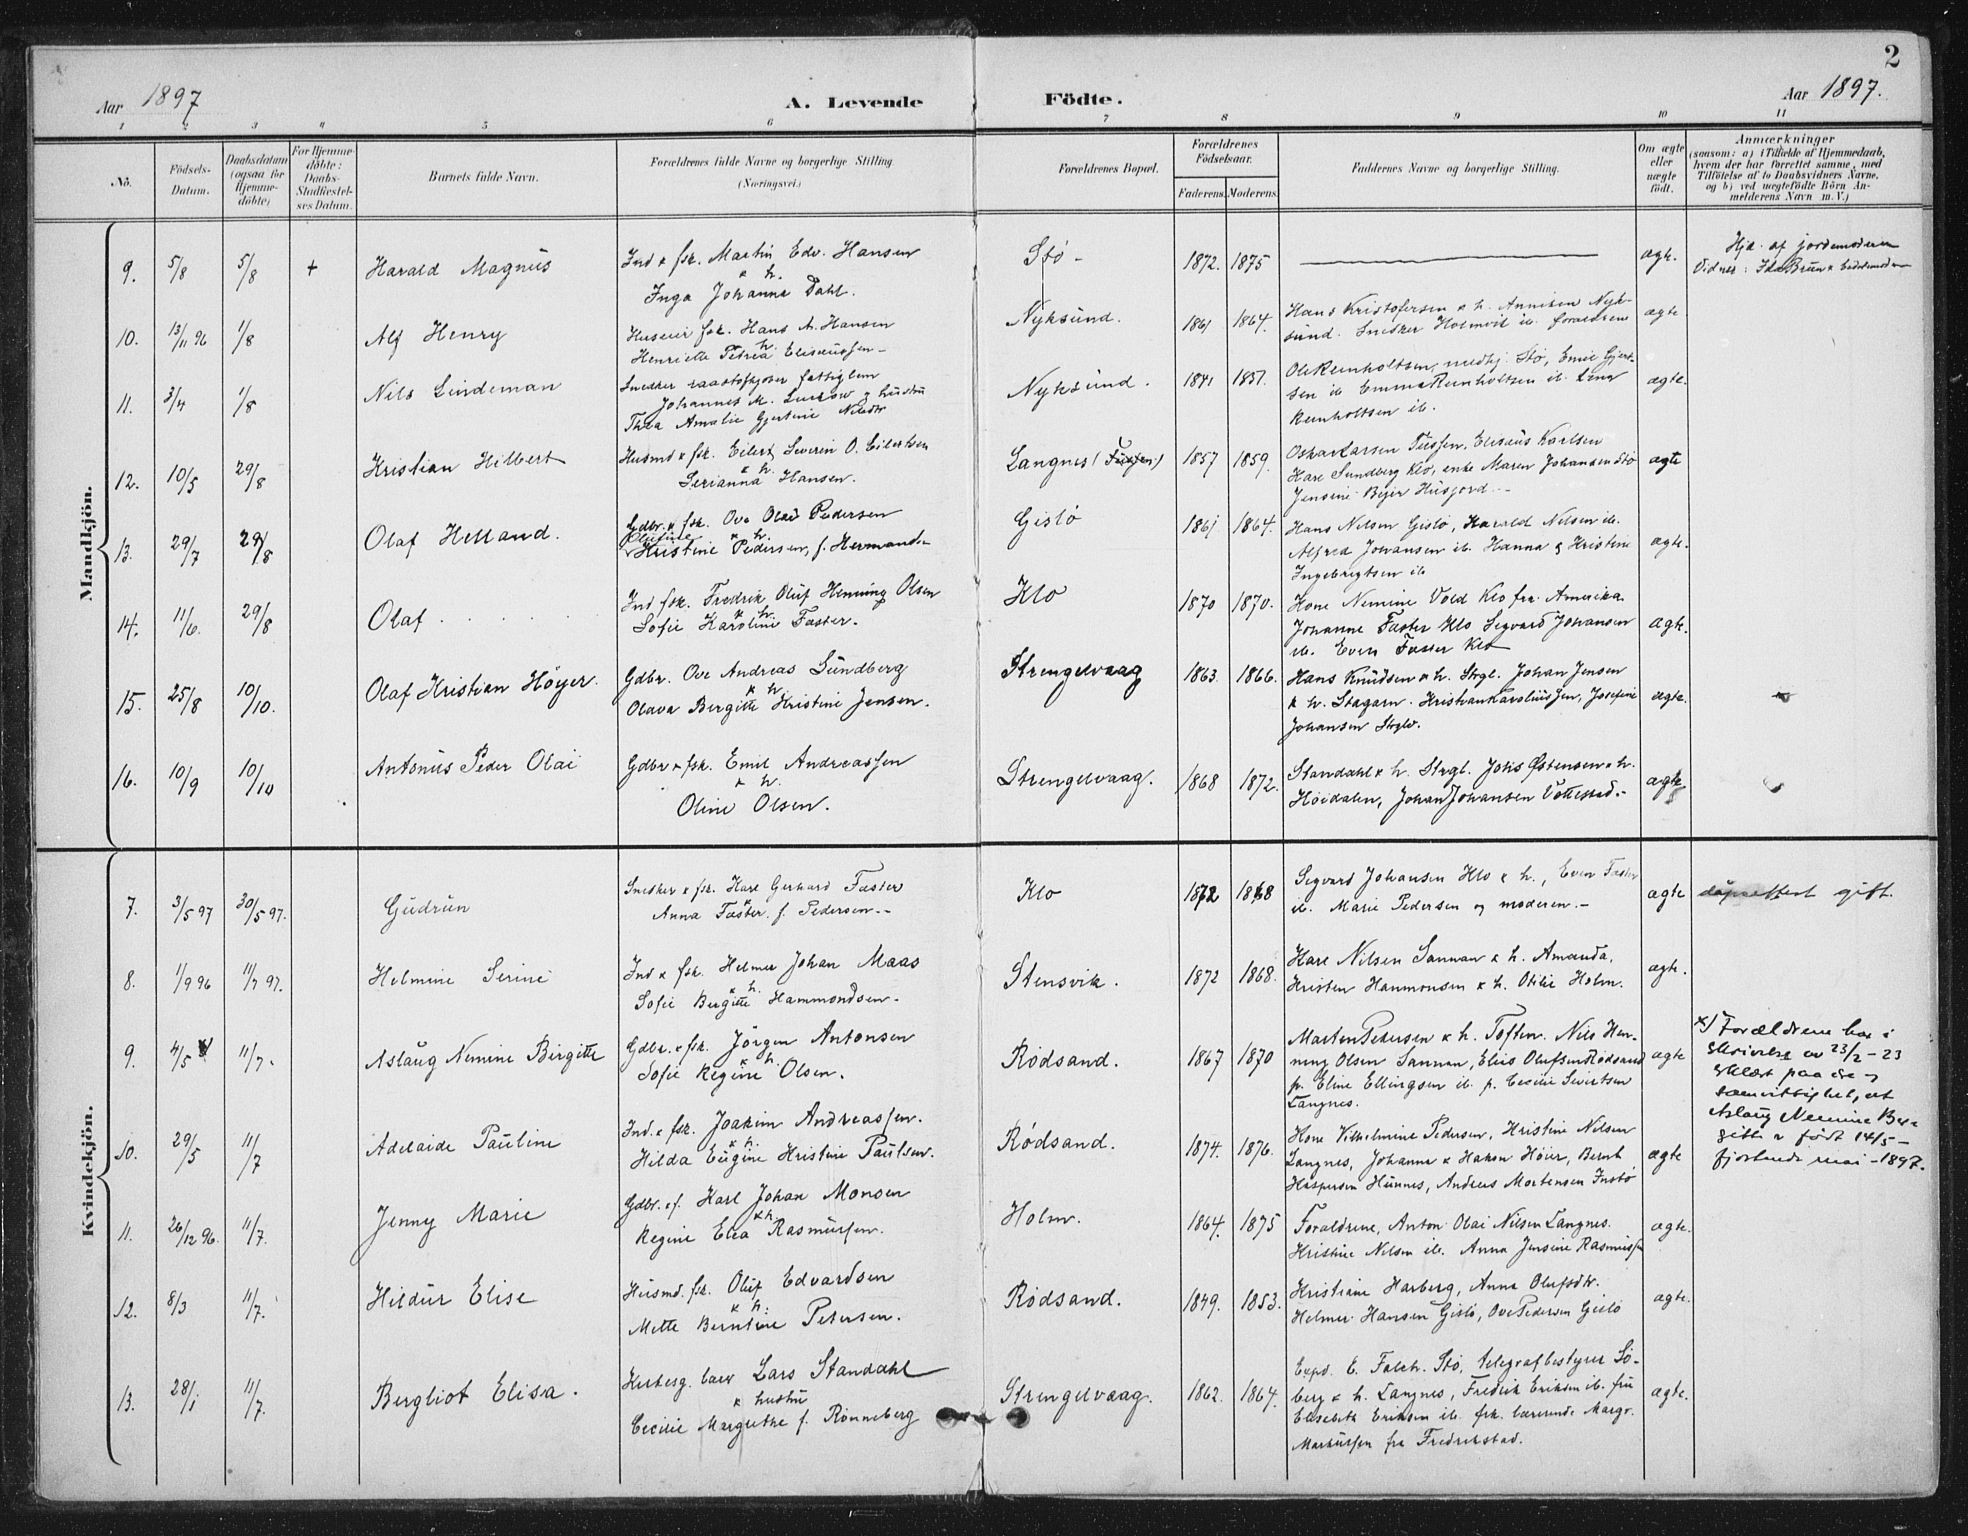 2
Aar 1897
A. Levende Födte.
Aar 1897.
1 2 3 4 5 6 7 8 9 10 11
No.
Födsels-
Datum.
Daabsdatum
(ogsaa for
Hjemme-
döbte)
For Hjemme-
döbte:
Daabs-
Stadfæstel-
ses Datum.
Barnets fulde Navn.
Forældrenes fulde Navne og borgerlige Stilling.
(Næringsvei.)
Forældrenes Bopæl.
Forældrenes
Födselsaar.
Faderens. Moderens.
Faddernes Navne og borgerlige Stilling.
Om ægte
eller
uægte
födt.
Anmærkninger
(saasom: a) i Tilfælde af Hjemmedaab,
hvem der har forrettet samme, med
Tilföielse af to Daabsvidners Navne,
og b) ved uægtefödte Börn An-
melderens Navn m. V.)
Mandkjön.
9. 5/8 5/8 + Harald Magnus
Ind & fsk. Martin Edv. Hansen
& h.
Inga Johanna Dahl.
Stö - 1872. 1875 ægte.
Hjd. af jordemoderen
Vidner: Ida Brun & bedstemoder
10. 13/11 96 1/8 Alf Henry
Huseier fsk. Hans A. Hansen
& h.
Henriette Petrea Eliseussen -
Nyksund. 1861 1864.
Hans Kristofersen & h. Annisen Nyk-
sund. Snedker Holmvil ib. forældrene
ægte
11. 3/4 1/8 Nils Lindeman
Snedker fattiglem
Johannes M. & hustru
Thea Amalie Gjertine Nilsdtr
Nyksund. 1841 1857.
Ole Reinholtsen, Stö, Emil Gjert-
sen ib Emma Reinholtsen ib. Lina
Reinholtsen ib.
ægte.
12. 10/5 29/8 Kristian Hilbert
Husmd & fsk. Eilert Severin O. Eilertsen
& h.
Serianna Hansen.
Langnes 1857 1859.
Oskar Larsen Eliseus Karlsen
Kare Sundberg Klo, enke Maren Johansen Stö
Jensine Beyer Husjord. -
ægte
13. 29/7 29/8 Olaf Helland.
Gdbr. & fsk. Ove Olai Pedersen
Olufine & h.
Kristine Pedersen, f. Hermands
Gislö 1861 1864.
Hans Nilsen Gislö, Harald Nilsen ib.
Alfred Johansen ib. Hanna & Kristine
Ingebrigtsen ib
ægte.
14. 11/6. 29/8 Olaf
Ind fsk. Fredrik Oluf Henning Olsen
& h.
Sofie Karoline Faster.
Klo 1870 1870.
Kone Nemine Vold Klo fra Amerika
Johanne Faster Klo Segvard Johansen
ib. Even Faster Klo
ægte.
15. 25/8 10/10. Olaf Kristian Höyer.
Gdbr. Ove Andreas Sundberg
& h.
Olava Bergitte Kristine Jensen.
Strengelvaag 1863. 1866.
Hans Knudsen & h. Strgl. Johan Jensen
& h. Stagarn. Kristian Karolius Jen, Josefine
Johansen Strglv.
ægte.
16. 10/9 10/10 Antonius Peder Olai
Gdbr & fsk. Emil Andreassen
& h.
Oline Olsen.
Strengelvaag. 1868 1872.
Standahl & h. Strgl. Johs Østensen & h.
Höidalen, Johan Johansen Vottestad.-
ægte
Kvindekjön.
7. 3/5 97 30/5 97. Gudrun
Snedker & fsk. Karl Gerhard Faster
&
Anna Faster f. Pedersen.-
Klo 1872 1868
Segvard Johansen Klo & h., Even Faster
ib. Marie Pedersen og moderen.-
ægte gift.
8. 1/9 96 11/7 97. Helmine Serine
Ind & fsk. Helmer Johan Maas
& h.
Sofie Bergitte Hammondsen.
Stensvik. 1872 1868.
Kare Nilsen Sannan & h. Amanda,
Kristen Hanmonsen & h. Otilie Holm.
ægte.
9. 4/5 x) 11/7. Aslaug Nemine Birgitte
Gdbr. & fsk. Jörgen Antonsen
& h.
Sofie Regine Olsen.
Rödsand. 1867 1870
Marten Pedersen & h. Toften. Nils Hen-
ning Olsen Sannan, Elias Olufsen Rödsand
p. Eline Ellingsen ib. p. Cecilie Sivertsen
Langnes.
ægte
x) Forældrene har i
skrivelse av 23/2 - 23
erklært paa ære og
samvittighet, at
Aslaug Nemine Bir-
gitte er født 14/5 -
fjortende mai - 1897.
10. 29/5 11/7 Adelaide Pauline
Ind. & fsk. Joakim Andreassen.
& h.
Hilda Eugine Kristine Paulsen.
Rödsand. 1874. 1876.
Kone Vilhelmine Pedersen, Kristine Nilsen
Langnes, Johanna & Hakon Höier, Bernt
Kaspersen Hunnes, Andreas Mortensen Instö
ægte
11. 26/12 96. 11/7. Jenny Marie
Gdbr. & f. Karl Johan Monsen
& h.
Regine Elea Rasmussen.
Holm. 1864. 1875
Forældrene, Anton Olai Nilsen Langnes.
Kristine Nilsen ib. Anna Jensine Rasmussen
ægte.
12. 8/3 11/7. Hildur Elise
Husmd. fsk. Oluf Edvardsen
& h.
Mette Berntine Petersen.
Rödsand. 1849. 1853.
Kristiane Harberg, Anna Olufsdtr.
Helmer Hansen Gislö, Ove Pedersen Gislö
ægte.
13. 28/1 11/7. Bergliot Elisa.
Lars Standahl
& hustru
Cecilie Margrethe f. Rönneberg
Strengelvaag. 1862. 1864.
Expd. E. Falch. Stö, telegrafbestyrer Sö-
berg & h. Langnes, Fredrik Eriksen ib. fru
Elisabeth Eriksen ib. frk. lærerinde Margr.
Markussen fra Fredrikstad.
ægte.